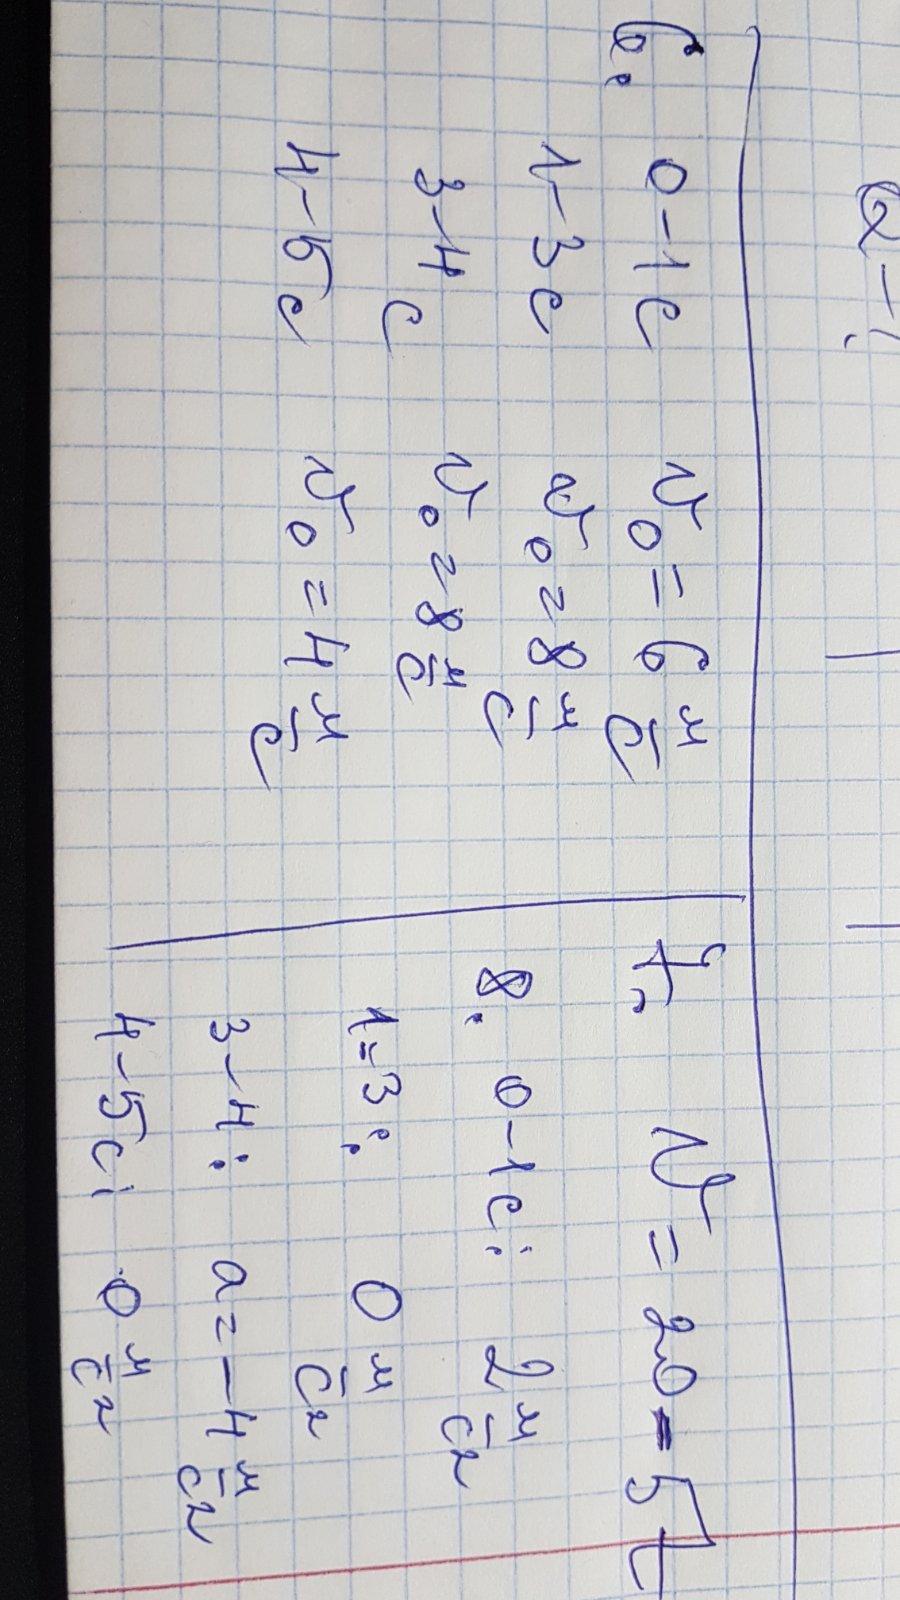 6. 0-1с v₀ = 6 м/с
1-3с v₀ = 8 м/с
3-4с v₀ = 8 м/с
4-5с v₀ = 4 м/с
7. v = 20 - 5t
8. 0-1с: 2 м/с²
1-3: 0 м/с²
3-4: a = -4 м/с²
4-5с: 0 м/с²